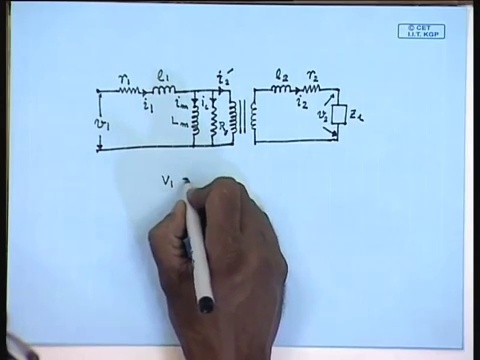 © CET
I.I.T. KGP
r₁ l₁ i₂′ l₂ r₂
i₁ iₘ i₂
v₁ Lₘ v₂ Z_L
V₁